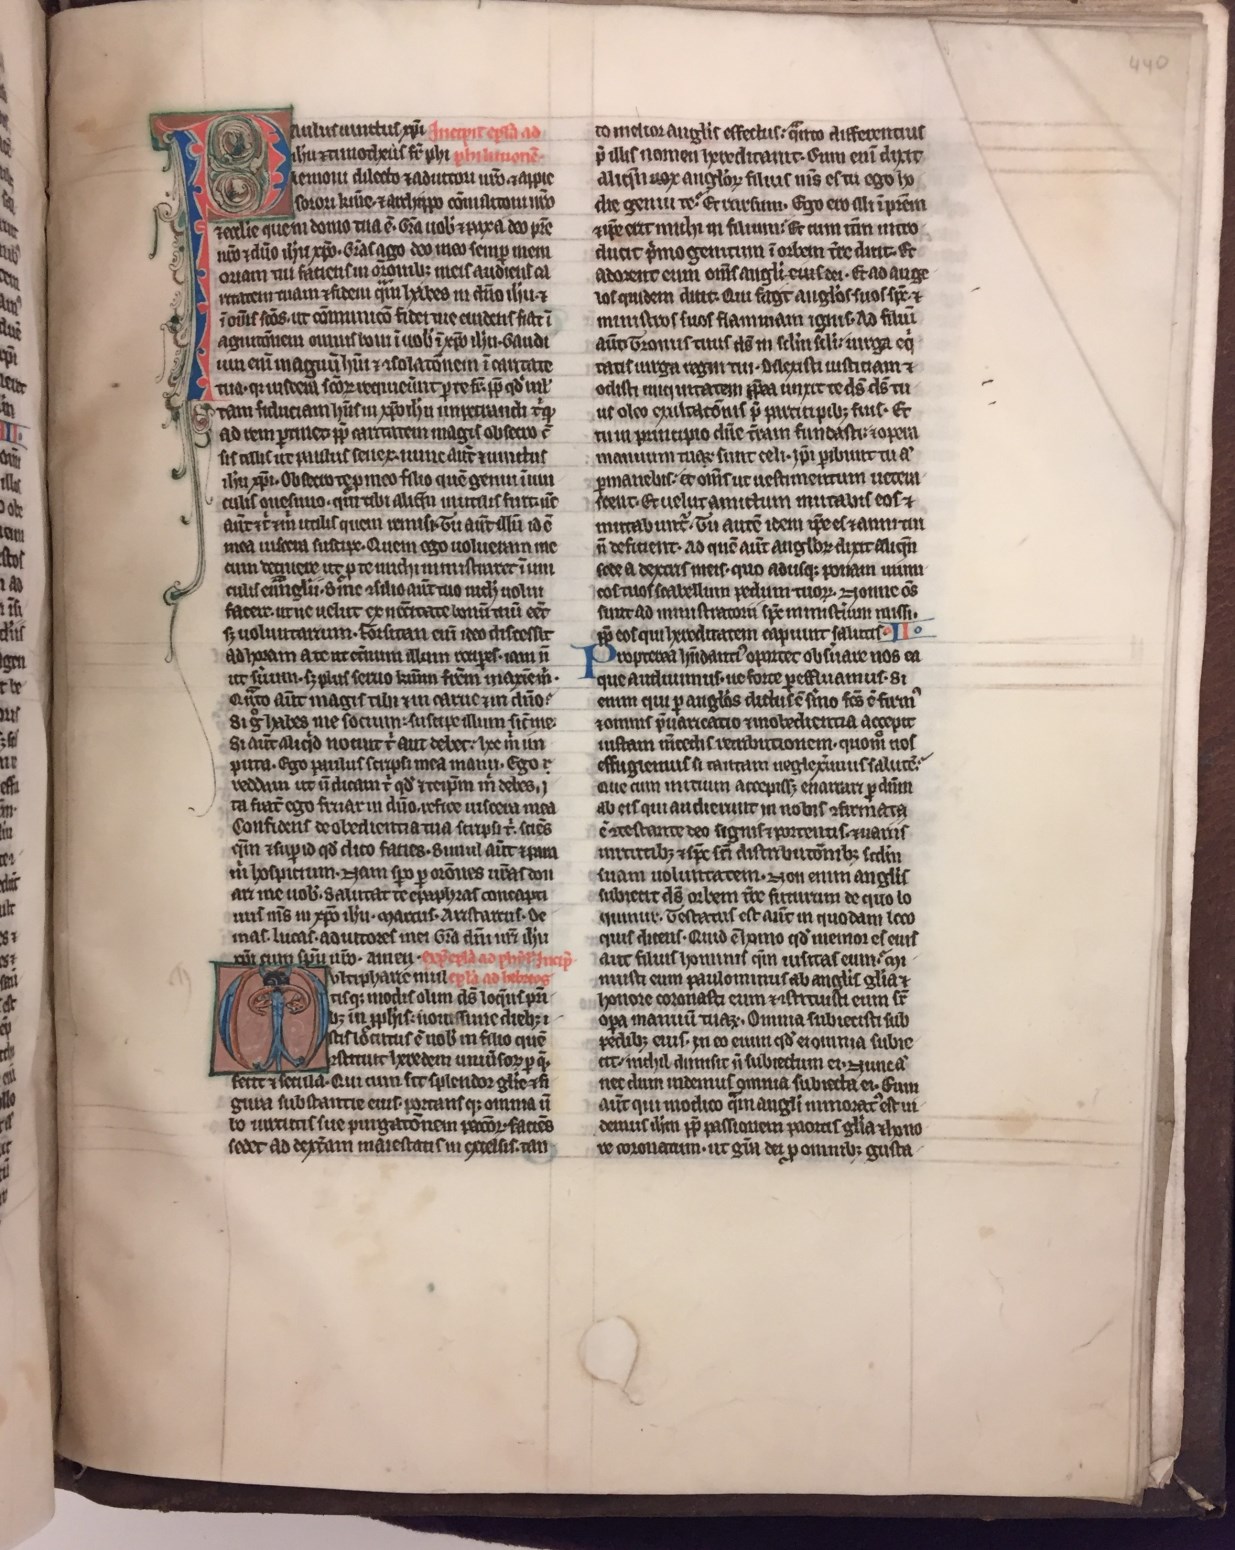 440
Paulus uinctus xp̄i Incipit ep̄la ad
ih̄u ⁊ timotheus fr̄ phi philemonē.
lemoni dilecto ⁊ adiutori nr̄o. ⁊ appie
sorori km̄e. ⁊ archippo cōmilitoni nr̄o
⁊ eccl̄ie que in domo tua ē. Gr̄a uob̄ ⁊ pax a deo pr̄e
nr̄o ⁊ dn̄o ih̄u xp̄o. Gr̄as ago deo meo semp̄ mem
oriam tui faciens in ōronibꝫ meis audiens ca
ritatem tuam ⁊ fidem qm̄ habes in dn̄o ih̄u. ⁊
ī om̄s sc̄os. ut cōmunicō fidei tue euidens fiat ī
agnitōnem omnis boni ī uob̄ ī xp̄o ih̄u. Gaudi
um eni magnū hūi ⁊ ꝯsolatōnem ī caritate
tua. qꝛ uiscera sc̄oꝝ requieūnt ꝑ te fr̄. ꝓp̄ qd̄ ml̄
tam fiduciam hn̄s in xp̄o ih̄u imperandi t̄ qd̄
ad rem ꝑtinet. ꝓp̄ caritatem magis obsecro c̄
sis talis ut paulus senex. nunc aut̄ ⁊ uinctus
ih̄u xp̄i. Obsecro te ꝓ meo filio quē genui ī uin
culis onesimo. qui tibi aliqn̄ inutilis fuit. nc̄
aut̄ ⁊ t̄ ⁊ m̄ utilis quem remisi. Tu aut̄ illū id ē
mea uiscera suscipe. Quem ego uolueram me
cum detinere ut ꝓ te michi ministraret ī uin
culis eūnglii. Sine ꝯsilio aut̄ tuo nich̄ uolui
facere. ut ne uelut ex nēcitate bonū tuū eēt
sꝫ uoluntarium. Forsitan eni ideo discessit
ad horam a te ut et̄num illum recipes. iam n̄
ut s̄uum. sꝫ plus seruo km̄m frēm maxīe m̄.
Quāto aut̄ magis tibi ⁊ in carne ⁊ in dn̄o:
Si g̊ habes me socium: suscipe illum sic̄ me.
Si aut̄ aliqd̄ nocuit t̄ aut debet: hoc m̄ im
puta. Ego paulus scripsi mea manu. Ego r̄
reddam ut n̄ dicam t̄ qd̄ ⁊ teip̄m m̄ debes. J
ta frat̄ ego fruar in dn̄o. refice uiscera mea
Confidens de obedientia tua scripsi t̄. sciēs
qm̄ ⁊ suꝑ id qd̄ dico facies. Simul aut̄ ⁊ para
m̄ hospitium. Nam sp̄o ꝑ ōrones ur̄as don
ari me uob̄. Salutat te epaphras concapti
uus m̄s in xp̄o ih̄u. Marcus. Aristarcus. De
mas. Lucas. adiutores mei. Gr̄a dn̄i nr̄i ih̄u
xp̄i cum sp̄u ur̄o. amen. Exp̄ ep̄la ad phil̄. Incip̄
Multipharie mul ep̄la ad hebreos
tisqꝫ modis olim ds̄ loq̄ns pr̄i
bꝫ in ꝓph̄is: nouissime diebꝫ i
stis locutus ē nob̄ in filio quē
ꝯstituit heredem uniūsoꝝ ꝑ q̄.
fecit ⁊ secula. Qui cum sit splendor gl̄ie ⁊ fi
gura substantie eius. portans qꝫ omnia ū
bo uirtutis sue purgatōnem pecc̄oꝝ faciēs
sedet ad dext̄am maiestatis in excelsis. tan
to melior angl̄is effectus: quāto differentius
p̄ illis nomen hereditauit. Cui eni dixit
aliqn̄ angl̄oꝝ filius m̄s es tu ego ho
die genui te: Et rursum. Ego ero illi ī pr̄em
⁊ ip̄e erit michi in filium: Et cum it̄m intro
ducit p̄mogenitum ī orbem t̄re dicit. Et
adorent eum om̄s angl̄i eius dei. Et ad ange
los quidem dicit. Qui facit angl̄os suos sp̄c. ⁊
ministros suos flammam ignis. Ad filiū
aut̄ Tronus tuus ds̄ in sclm̄ scl̄i: uirga eq̄
tatis uirga regni tui. Dilexisti iusticiam ⁊
odisti iniquitatem ꝓp̄ea unxit te ds̄ ds̄ tu
us oleo exultatōnis p̄ participibꝫ tuis. Et
tu in principio dn̄e t̄ram fundasti: ⁊ opera
manuum tuaꝝ sunt celi. Ip̄i ꝑibunt tu aͭ
ꝑmanebis: ⁊ om̄s ut uestimentum uetera
scent. Et uelut amictum mutabis eos ⁊
mutabunt̄. Tu autē idem ip̄e es ⁊ anni tui
n̄ deficient. Ad quē aut̄ angl̄oꝝ dixit aliqn̄
sede a dextris meis. quo adusqꝫ ponam inimi
cos tuos scabellum pedum tuoꝝ. Nonne ōs
sunt administratorii sp̄c in minist̄ium missi.
ꝓp̄ eos qui hereditatem capiunt salutis. II.
Propterea habundantiꝰ oportet obs̄uare nos ea
que audiuimus. ne forte ꝑeffluamus. Si
enim qui ꝑ angl̄os dictus ē s̄mo fc̄s ē firmꝰ
⁊ omnis p̄uaricatio ⁊ inobedientia accepit
iustam m̄cedis retributionem. quom̊ nos
effugiemus si tantam neglex̄imus salutē:
Que cum initium accepissꝫ enarrari ꝑ dn̄m
ab eis qui audierunt in nobis ꝯfirmata
ē ꝯtestante deo signis ⁊ portentis. ⁊ uariis
uirtutibꝫ ⁊ sp̄c sc̄i distributōnibꝫ scd̄m
suam uoluntatem. Non enim anglis
subiecit ds̄ orbem t̄re futurum de quo lo
quimur. Testatus est aut̄ in quodam loco
quis dicens. Quid ē homo qd̄ memor es eius
aut filius hominis qm̄ uisitas eum: Mi
nuisti eum paulominus ab anglis gl̄ia ⁊
honore coronasti eum ⁊ ꝯstituisti eum sr̄
opa manuū tuaꝝ. Omnia subiecisti sub
pedibꝫ eius. In eo enim qd̄ ei omnia subie
cit: nichil dimisit n̄ subiectum ei. Nunc aͭ
nec dum uidemus omnia subiecta ei. Eum
aut̄ qui modico qm̄ angli minoratꝰ est ui
demus ih̄m ꝓp̄ passionem mortis gl̄ia ⁊ hono
re coronatum. ut gr̄a dei ꝓ omnibꝫ gusta